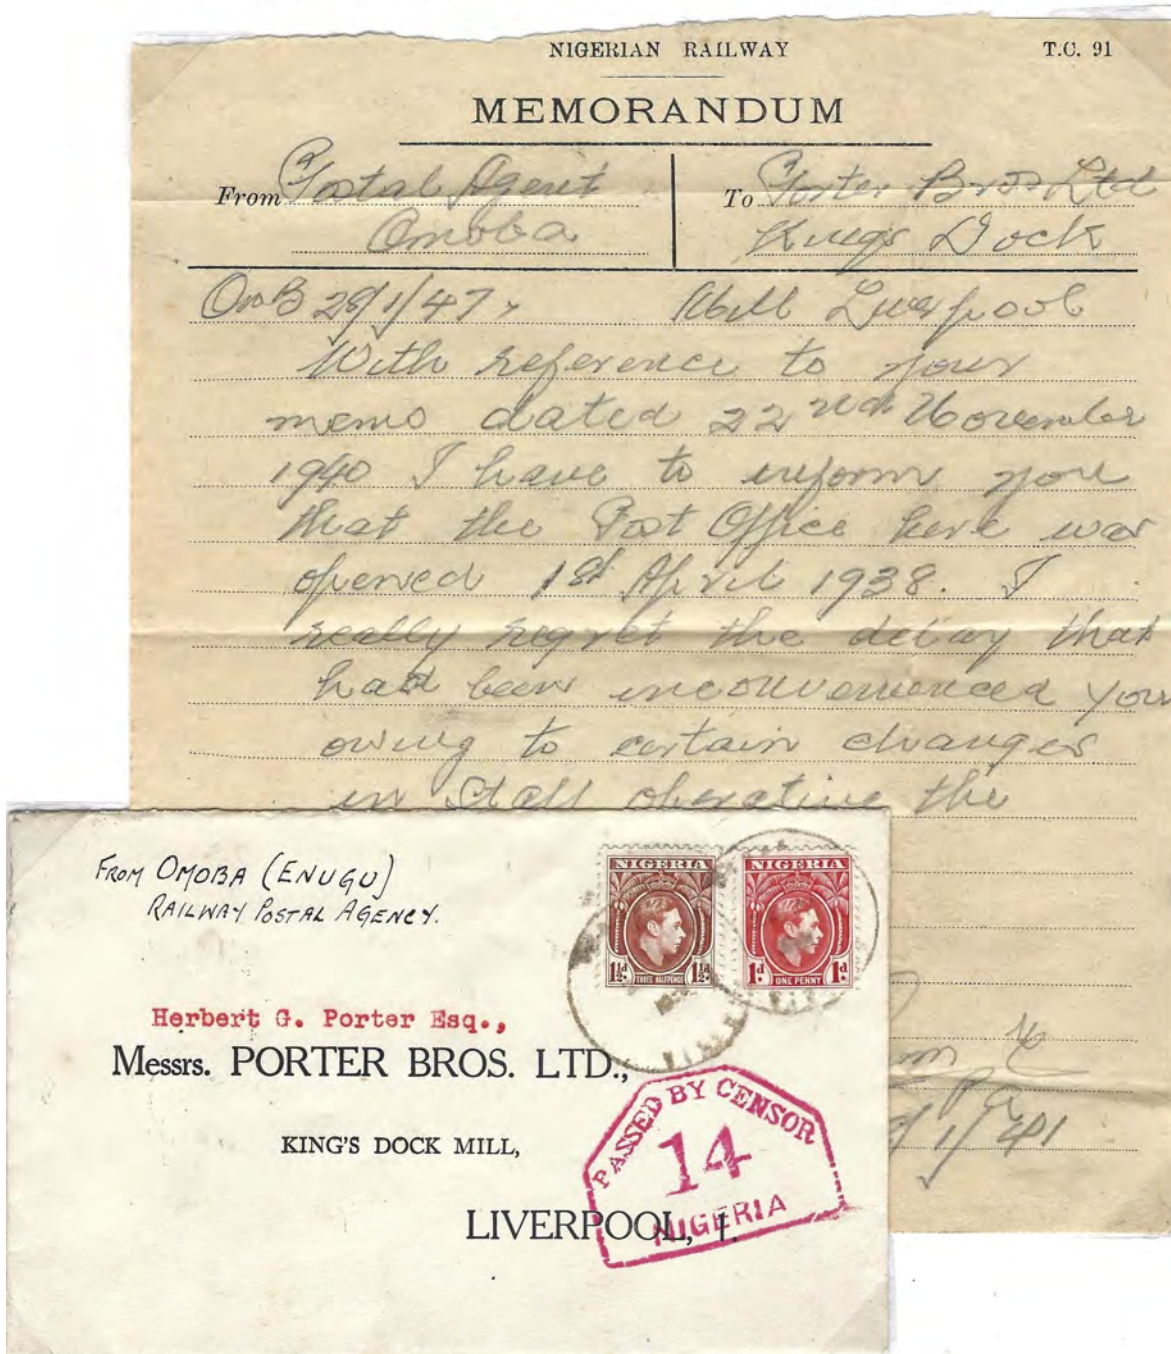 NIGERIAN RAILWAY
T.C. 91
MEMORANDUM
From Postal Agent
Omoba
To Porter Bros Ltd
King's Dock
OmB 28/1/47
Mill Liverpool
With reference to your
memo dated 22nd November
1940 I have to inform you
that the Post Office here was
opened 1st April 1938. I
really regret the delay that
had been inconvenienced you
owing to certain changes
in Staff operating the
1/41
FROM OMOBA (ENUGU)
RAILWAY POSTAL AGENCY.
NIGERIA
1½d. THREE HALFPENCE 1½d.
NIGERIA
1d. ONE PENNY 1d.
Herbert G. Porter Esq.,
Messrs. PORTER BROS. LTD.,
KING'S DOCK MILL,
LIVERPOOL, 1.
PASSED BY CENSOR
14
NIGERIA